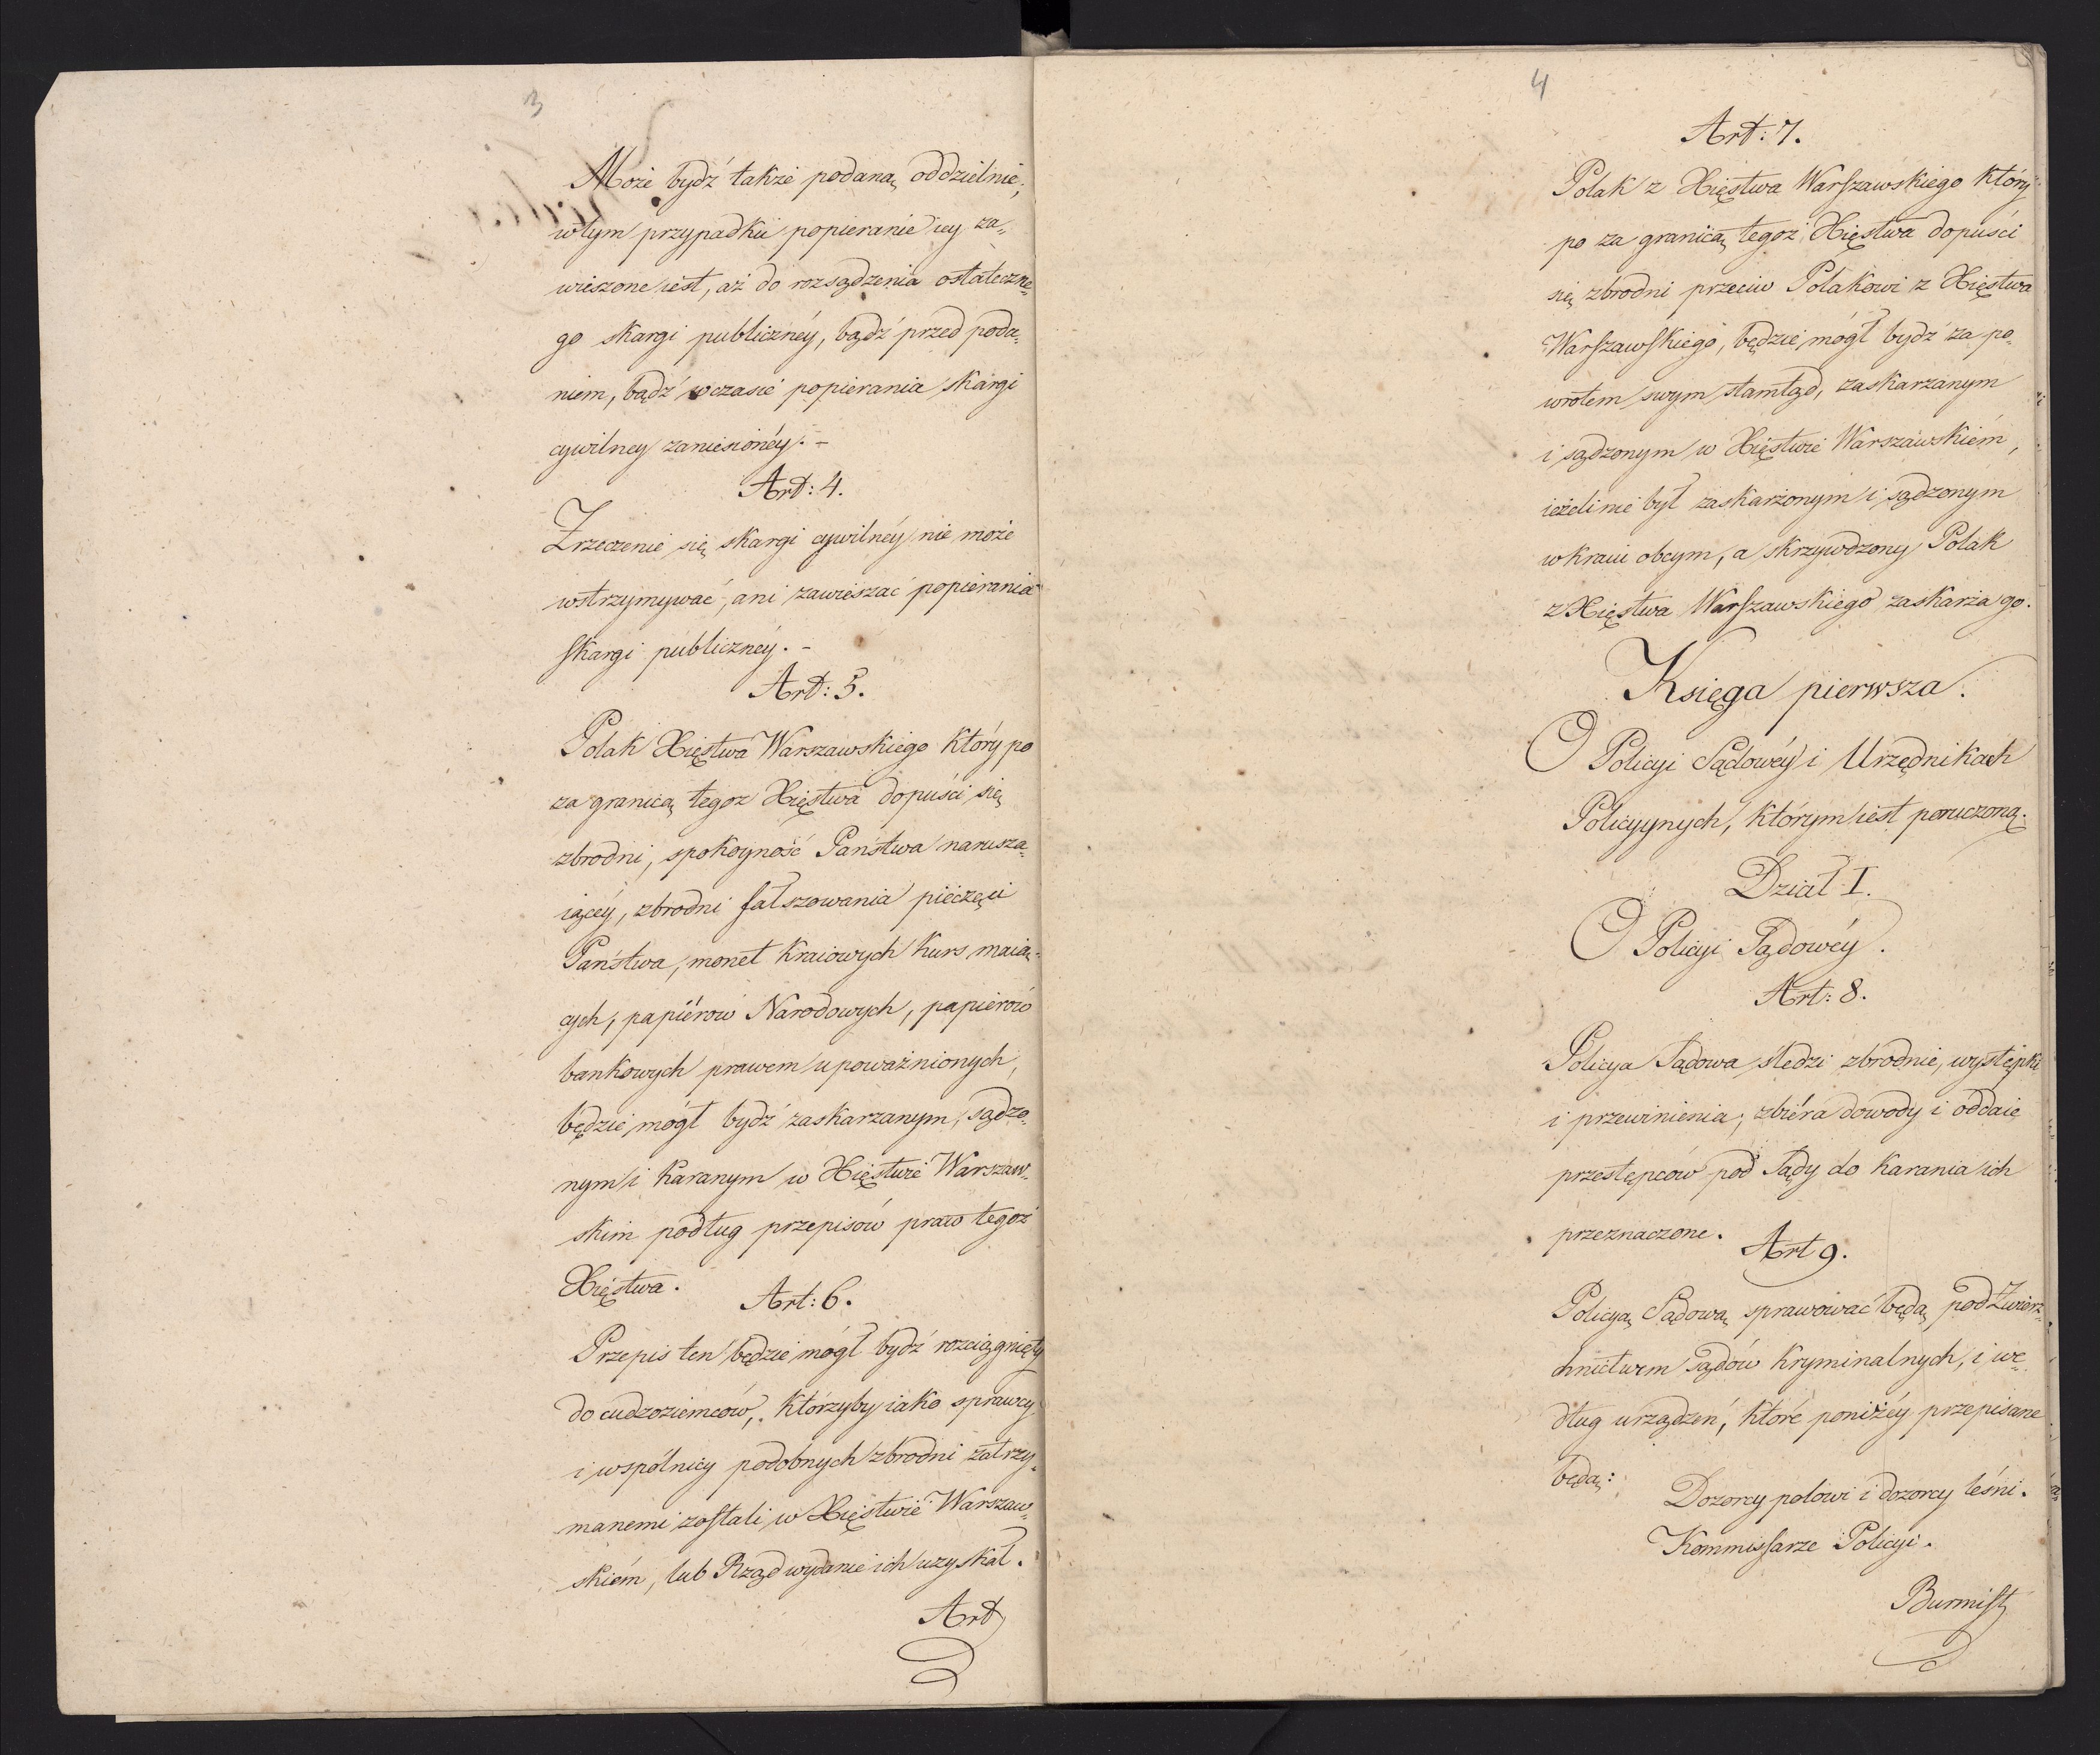 3
Może bydź także podaną oddzielnie;
w tym przypadku popieranie iey za-
wieszone iest, aż do rozsądzenia ostateczne-
go skargi publicznéy, bądź przed poda-
niem, bądź w czasie popierania skargi
cywilney zaniesionéy. -
Art: 4.
Zrzeczenie się skargi cywilnéy nie może
wstrzymywać, ani zawieszać popierania
skargi publicznéy. -
Art: 5.
Polak Xięstwa Warszawskiego który po
za granicą tegoż Xięstwa dopuści się
zbrodni, spokoyność Państwa narusza-
iącéy, zbrodni fałszowania pieczęci
Państwa, monet kraiowych kurs maią-
cych, papiérow Narodowych, papierów
bankowych prawem upoważnionych,
będzie mógł bydź zaskarzanym, sądzo-
nym i karanym w Xięstwie Warszaw-
skim podług przepisów praw tegoż
Xięstwa.
Art: 6.
Przepis ten będzie mógł bydź rozciągnięty
do cudzoziemców, którzyby iako sprawcy
i wspólnicy podobnych zbrodni zatrzy-
manemi zostali w Xięstwie Warszaw-
skiém, lub Rząd wydanie ich uzyskał.
Art
4
Art: 7.
Polak z Xięstwa Warszawskiego który
po za granicą tegoż Xięstwa dopuści
się zbrodni przeciw Polakowi z Xięstwa
Warszawskiego, będzie mógł bydź za po-
wrotem swym stamtąd, zaskarzanym
i sądzonym w Xięstwie Warszawskiém,
ieżeli nie był zaskarżonym i sądzonym
w kraiu obcym, a skrzywdzony Polak
z Xięstwa Warszawskiego zaskarża go.
Księga pierwsza.
O Policyi Sądowéy i Urzędnikach
Policyynych, którym iest poruczoną.
Dział I.
O Policyi Sądowéy.
Art: 8.
Policya Sądowa śledzi zbrodnie, występki
i przewinienia, zbiéra dowody i oddaie
przestępców pod Sądy do karania ich
przeznaczone.
Art 9.
Policyą Sądową sprawować będą pod Zwierz-
chnictwem Sądów Kryminalnych, i we-
dług urządzeń, które poniżéy przepisane
będą:
Dozorcy polowi i dozorcy leśni.
Kommissarze Policyi.
Burmist